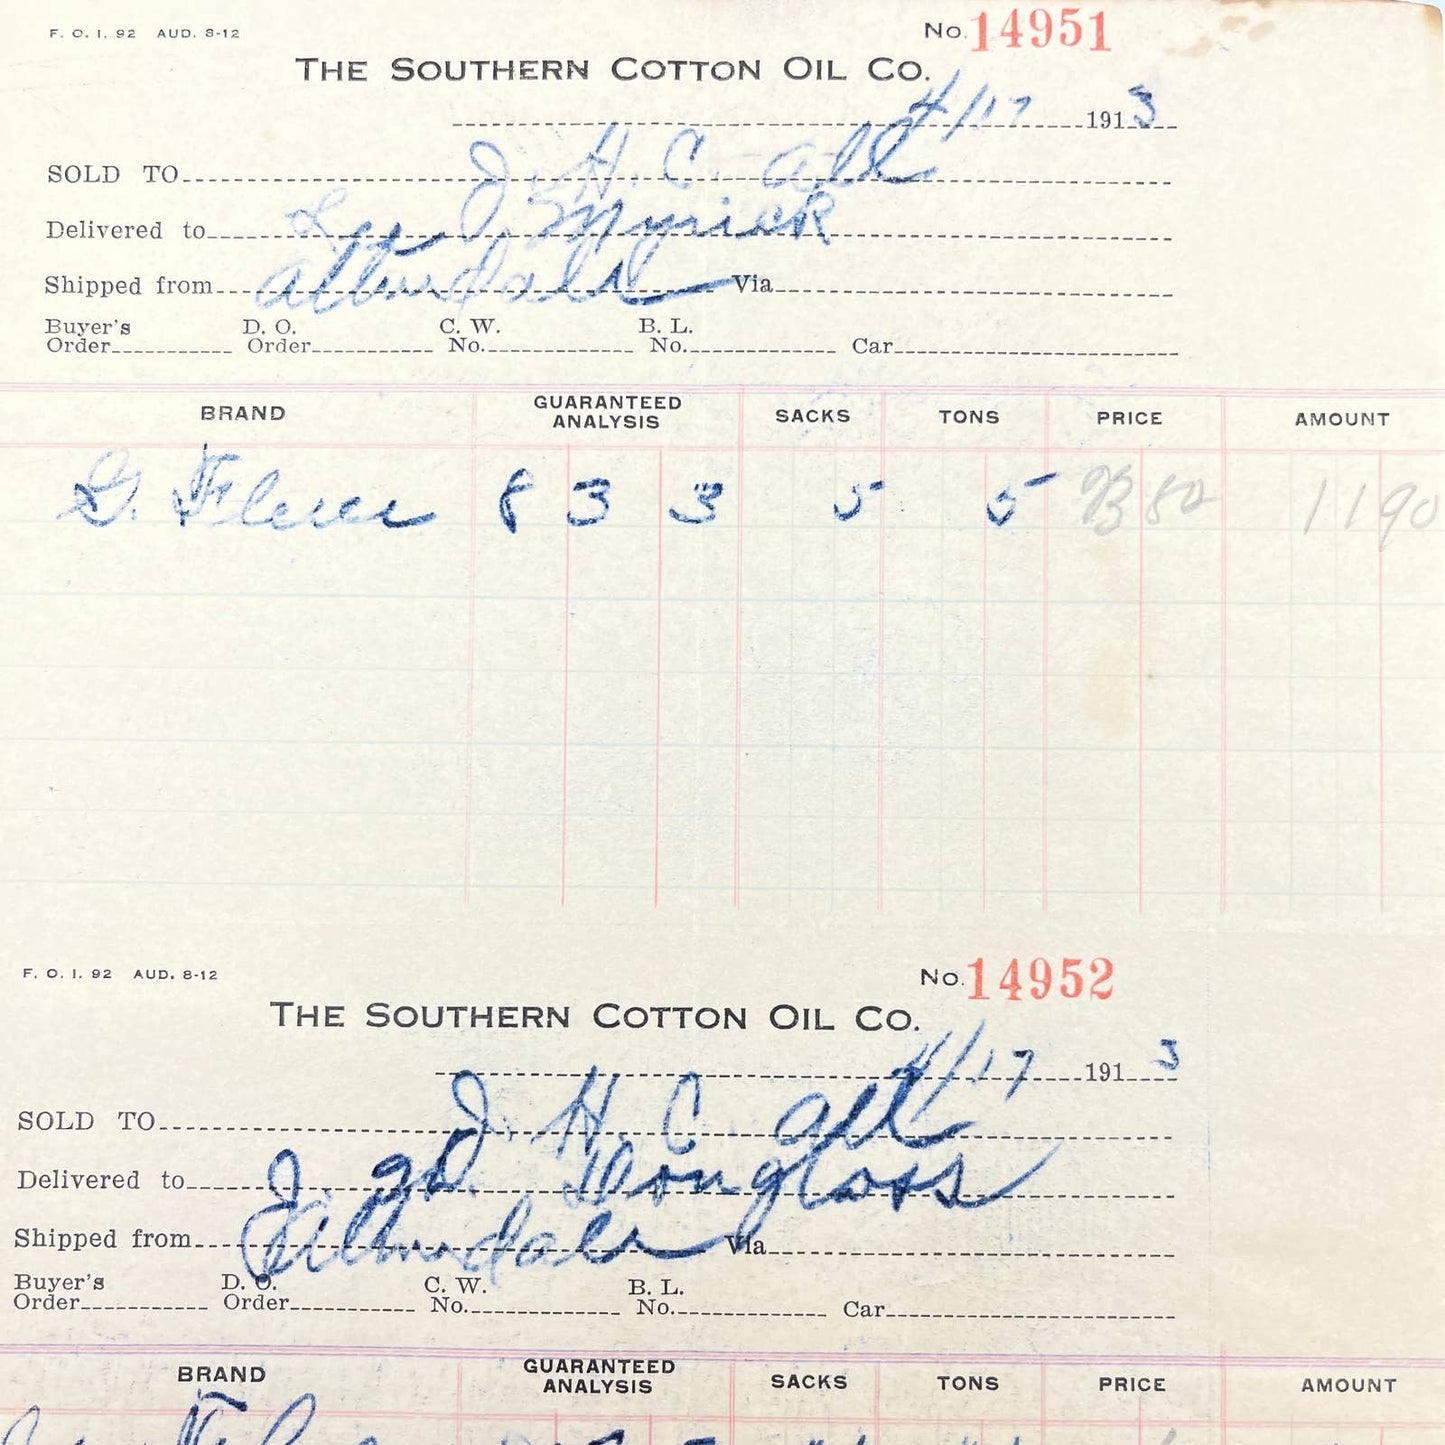 F. O. I. 92 AUD. 8-12 No. 14951
THE SOUTHERN COTTON OIL CO.
4/17 1913
SOLD TO J. H. C. all
Delivered to Lee J. Myrick
Shipped from Via
Buyer's Order D. O. Order C. W. No. B. L. No. Car
BRAND GUARANTEED ANALYSIS SACKS TONS PRICE AMOUNT
G. 8 3 3 5 5 80 1190
F. O. I. 92 AUD. 8-12 No. 14952
THE SOUTHERN COTTON OIL CO.
4/17 1913
SOLD TO J. H. C. all
Delivered to J. Douglass
Shipped from Via
Buyer's Order D. O. Order C. W. No. B. L. No. Car
BRAND GUARANTEED ANALYSIS SACKS TONS PRICE AMOUNT